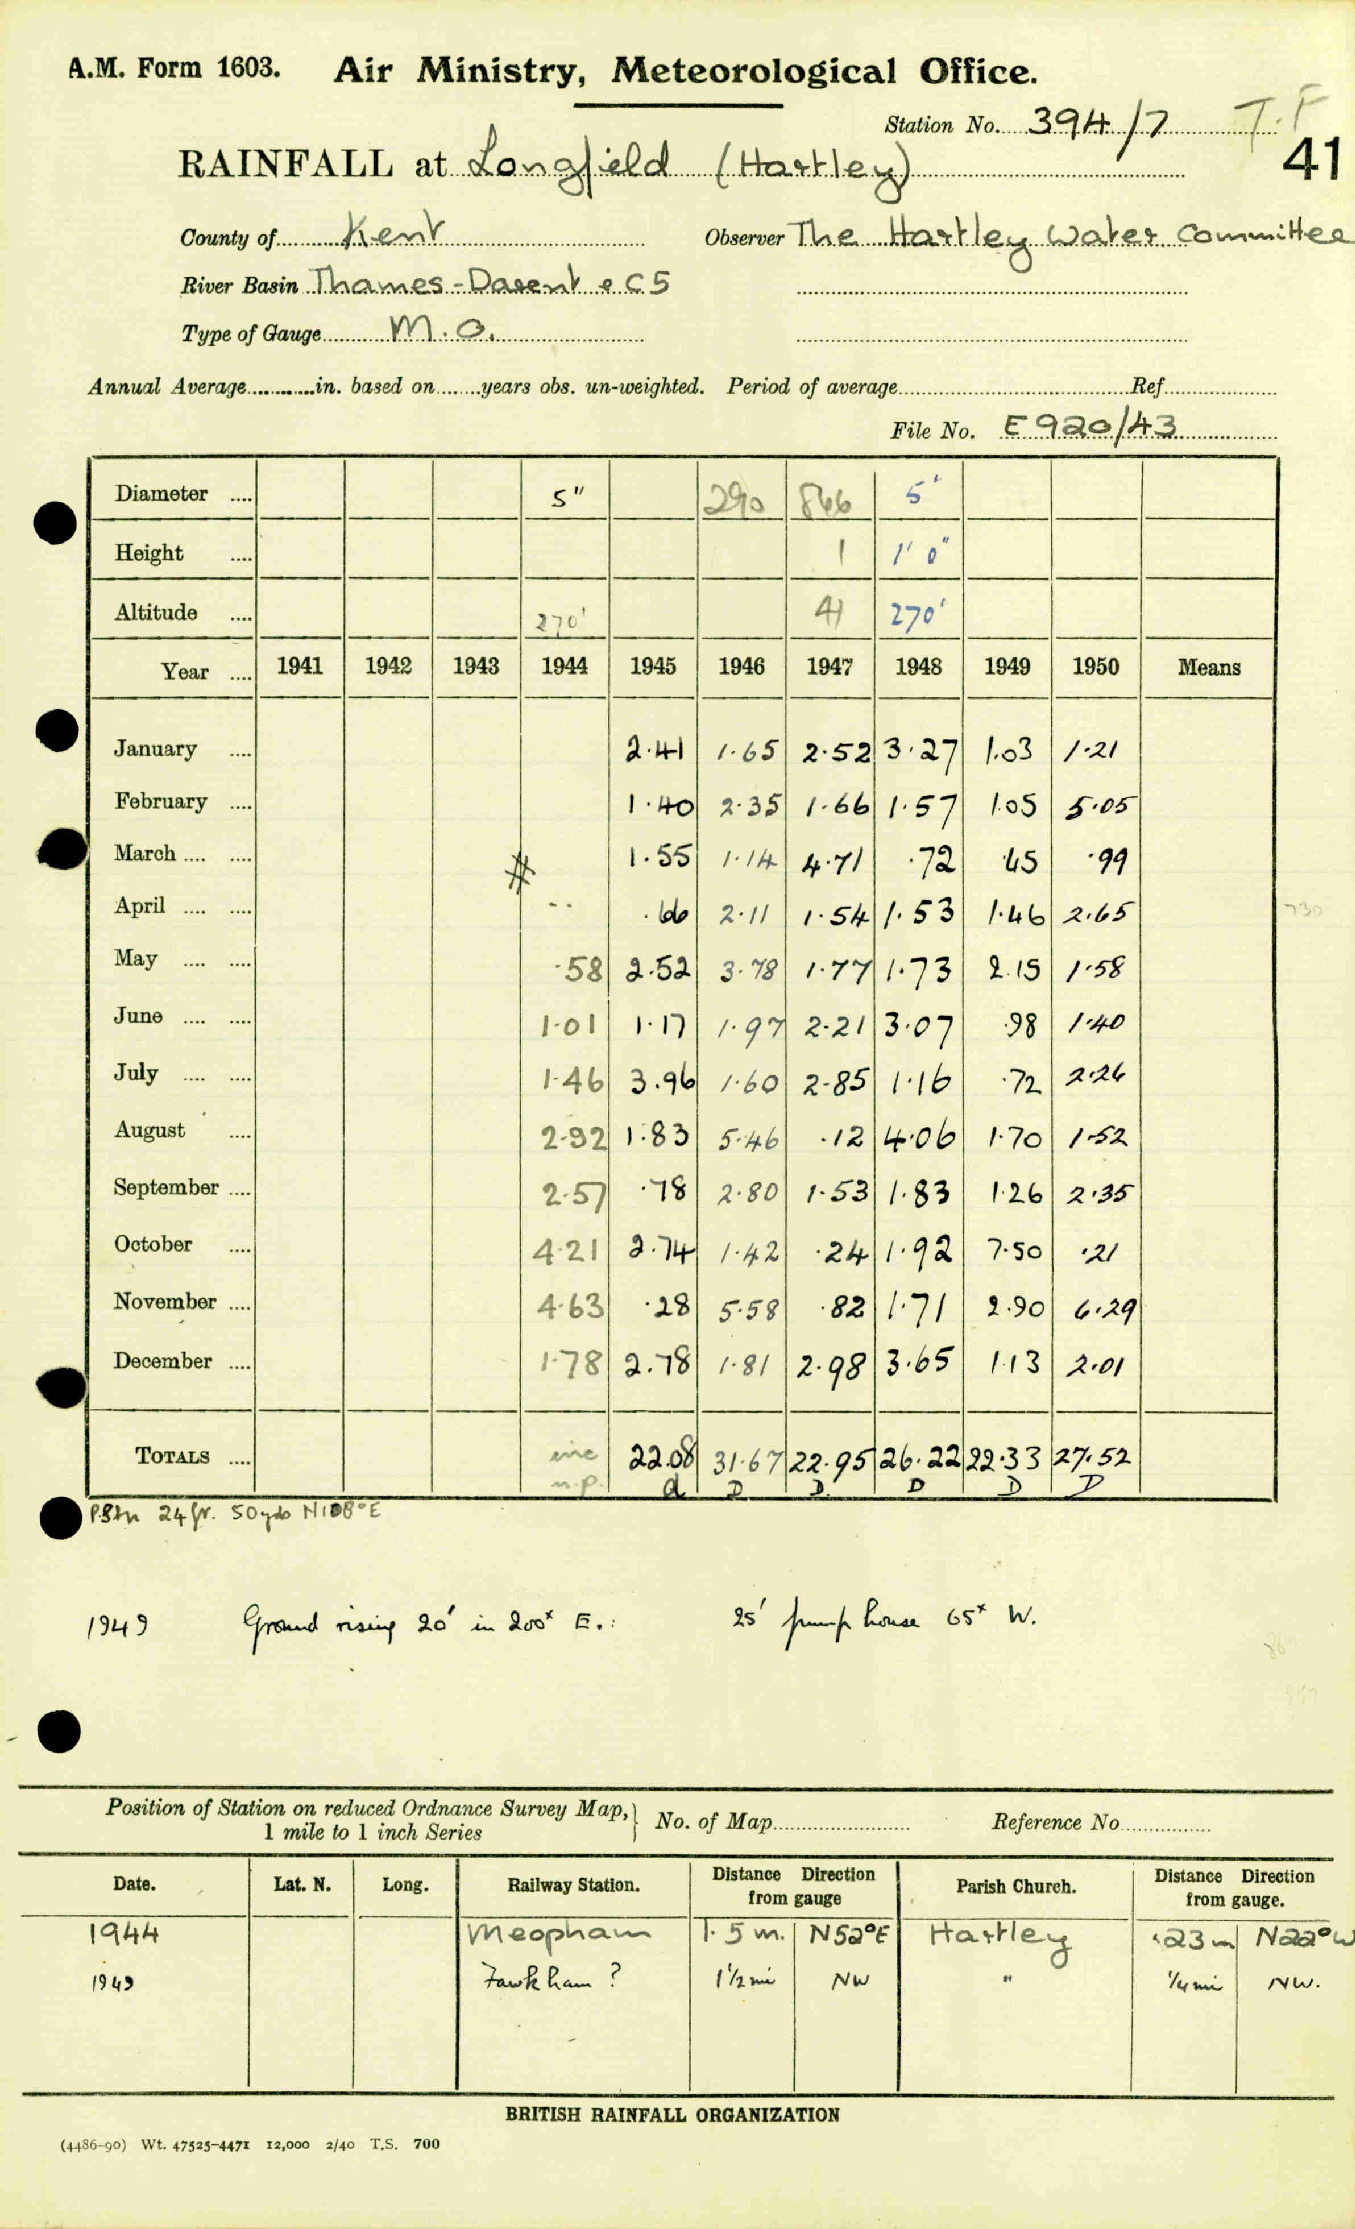 A.M. Form 1603. Air Ministry, Meteorological Office.
Station No. 394/7 T.F
41
RAINFALL at Longfield (Hartley)
County of Kent Observer The Hartley Water Committee
River Basin Thames-Darent e C5
Type of Gauge M.O.
Annual Average in. based on years obs. un-weighted. Period of average Ref
File No. E920/43
Diameter .... 5" 290 846 5'
Height .... 1 1' 0"
Altitude .... 270' 41 270'
Year .... 1941 1942 1943 1944 1945 1946 1947 1948 1949 1950 Means
January .... 2.41 1.65 2.52 3.27 1.03 1.21
February .... 1.40 2.35 1.66 1.57 1.05 5.05
March .... .... # 1.55 1.14 4.71 .72 .45 .99
April .... .... -- .66 2.11 1.54 1.53 1.46 2.65 730
May .... .... .58 2.52 3.78 1.77 1.73 2.15 1.58
June .... .... 1.01 1.17 1.97 2.21 3.07 .98 1.40
July .... .... 1.46 3.96 1.60 2.85 1.16 .72 2.26
August .... 2.92 1.83 5.46 .12 4.06 1.70 1.52
September .... 2.57 .78 2.80 1.53 1.83 1.26 2.35
October .... 4.21 2.74 1.42 .24 1.92 7.50 .21
November .... 4.63 .28 5.58 .82 1.71 2.90 6.29
December .... 1.78 2.78 1.81 2.98 3.65 1.13 2.01
TOTALS .... inc 22.08 31.67 22.95 26.22 22.33 27.52
n.p. d D D D D D
24 fr. 50yds N108°E
1949 Ground rising 20' in 200x E.: 25' pump house 65x W.
Position of Station on reduced Ordnance Survey Map, } No. of Map Reference No
1 mile to 1 inch Series
Date. Lat. N. Long. Railway Station. Distance Direction from gauge Parish Church. Distance Direction from gauge.
1944 Meopham 1.5 m. N52°E Hartley .23m N22°W
1949 Fawkham ? 1½mi NW " ¼mi NW.
BRITISH RAINFALL ORGANIZATION
(4486-90) Wt. 47525-4471 12,000 2/40 T.S. 700